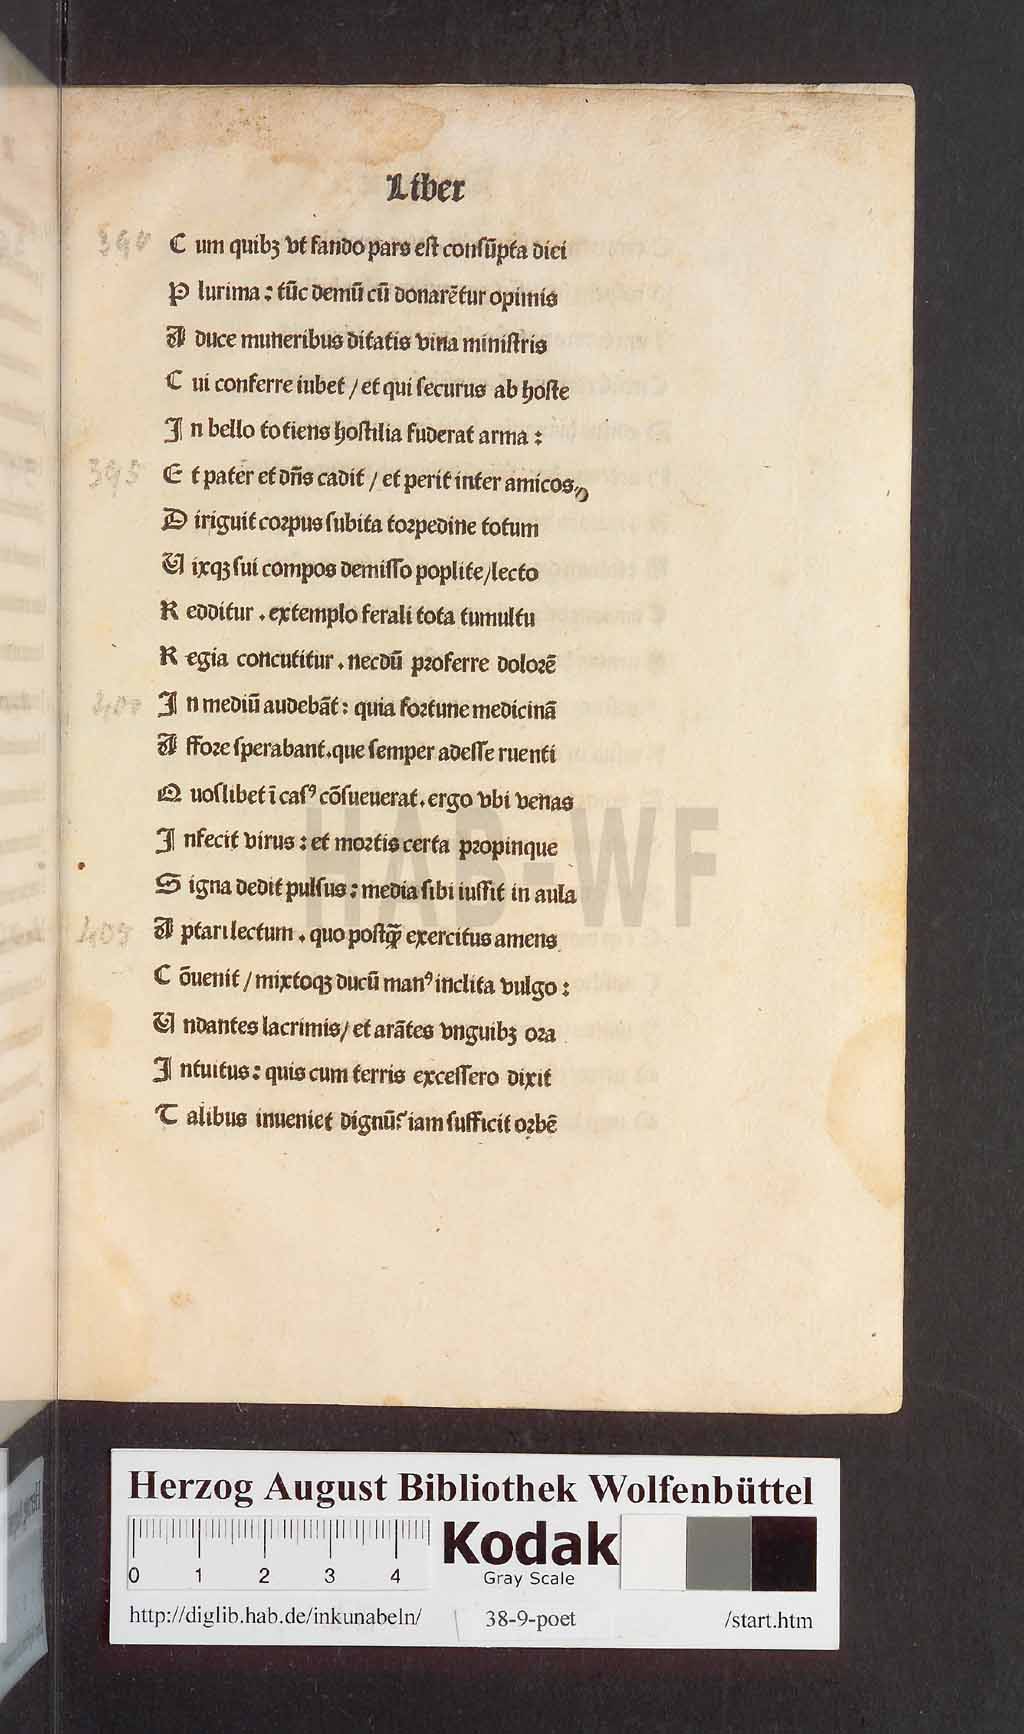 Liber
390 C um quibꝫ vt fando pars eſt conſūpta diei
P lurima : tūc demū cū donarētur opimis
A duce muneribus ditatis vina miniſtris
C ui conferre iubet / et qui ſecurus ab hoſte
I n bello totiens hoſtilia fuderat arma :
395 E t pater et dn̄s cadit / et perit inter amicos
D iriguit coꝛpus ſubita toꝛpedine totum
U ixqꝫ ſui compos demiſſo poplite / lecto
R edditur . extemplo ferali tota tumultu
R egia concutitur . necdū pꝛoferre doloꝛē
400 I n mediū audebāt : quia foꝛtune medicinā
A ffoꝛe ſperabant . que ſemper adeſſe ruenti
Q uoſlibet ī caſꝰ cōſueuerat . ergo vbi venas
I nfecit virus : et moꝛtis certa pꝛopinque
S igna dedit pulſus : media ſibi iuſſit in aula
405 A ptari lectum . quo poſtꝙ̄ exercitus amens
C ōuenit / mixtoqꝫ ducū manꝰ inclita vulgo :
U ndantes lacrimis / et arātes vnguibꝫ oꝛa
I ntuitus : quis cum terris exceſſero dixit
T alibus inueniet dignū? iam ſufficit oꝛbē
HAB-WF
Herzog August Bibliothek Wolfenbüttel
0 1 2 3 4
Kodak
Gray Scale
http://diglib.hab.de/inkunabeln/ 38-9-poet /start.htm